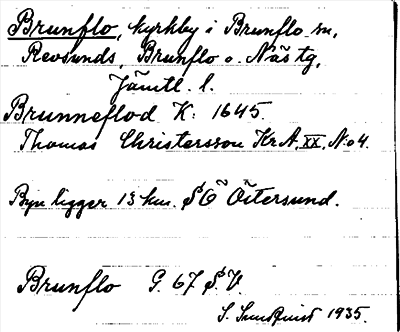 Brunflo, kyrkby i Brunflo sn,
Revsunds, Brunflo o. Näs tg,
Jämtl. l.
Brunneflod K: 1645.
Thomas Christersson Kr A. XX, No 4.
Byn ligger 13 km. SO Östersund.
Brunflo G. 67 S.V.
S. Sundquist 1935.